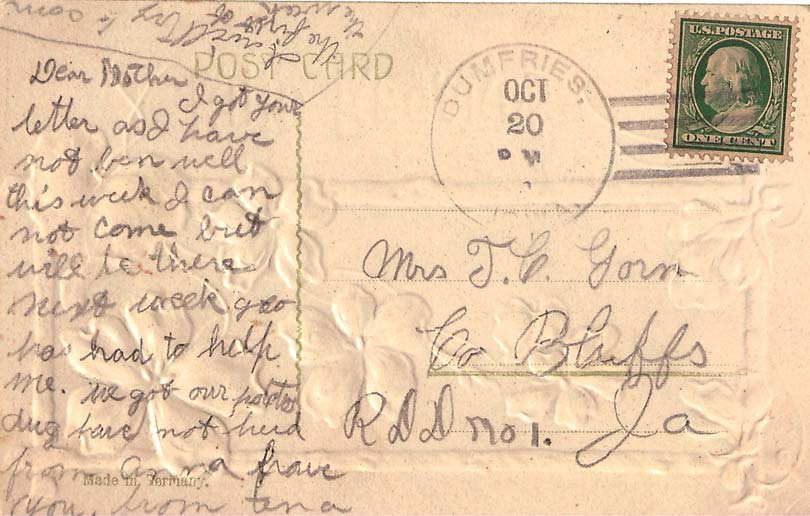 the week
the first of
I will try to com
POST CARD
Dear Mother
I got your
letter as I have
not ben well
this week I can
not come but
will be there
next week geo
has had to help
me. we got our potatos
dug have not herd
from anna have
you, from tena
Made in Germany.
DUMFRIES,
OCT
20
PM
U.S.POSTAGE
ONE CENT
Mrs T. C. Gorn
Co Bluffs
R D D no 1. Ia